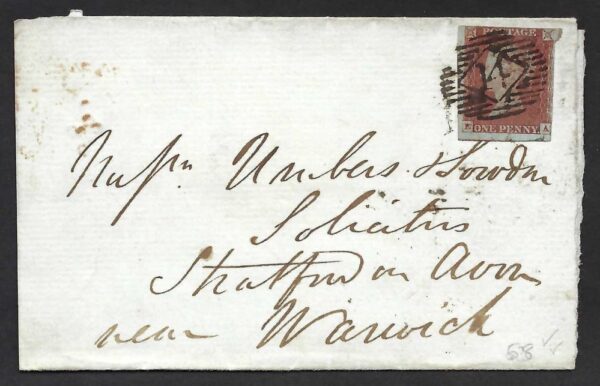 POSTAGE
14
ONE PENNY
A
Umbers &
Solicitors
Stratford on Avon
near Warwick
58